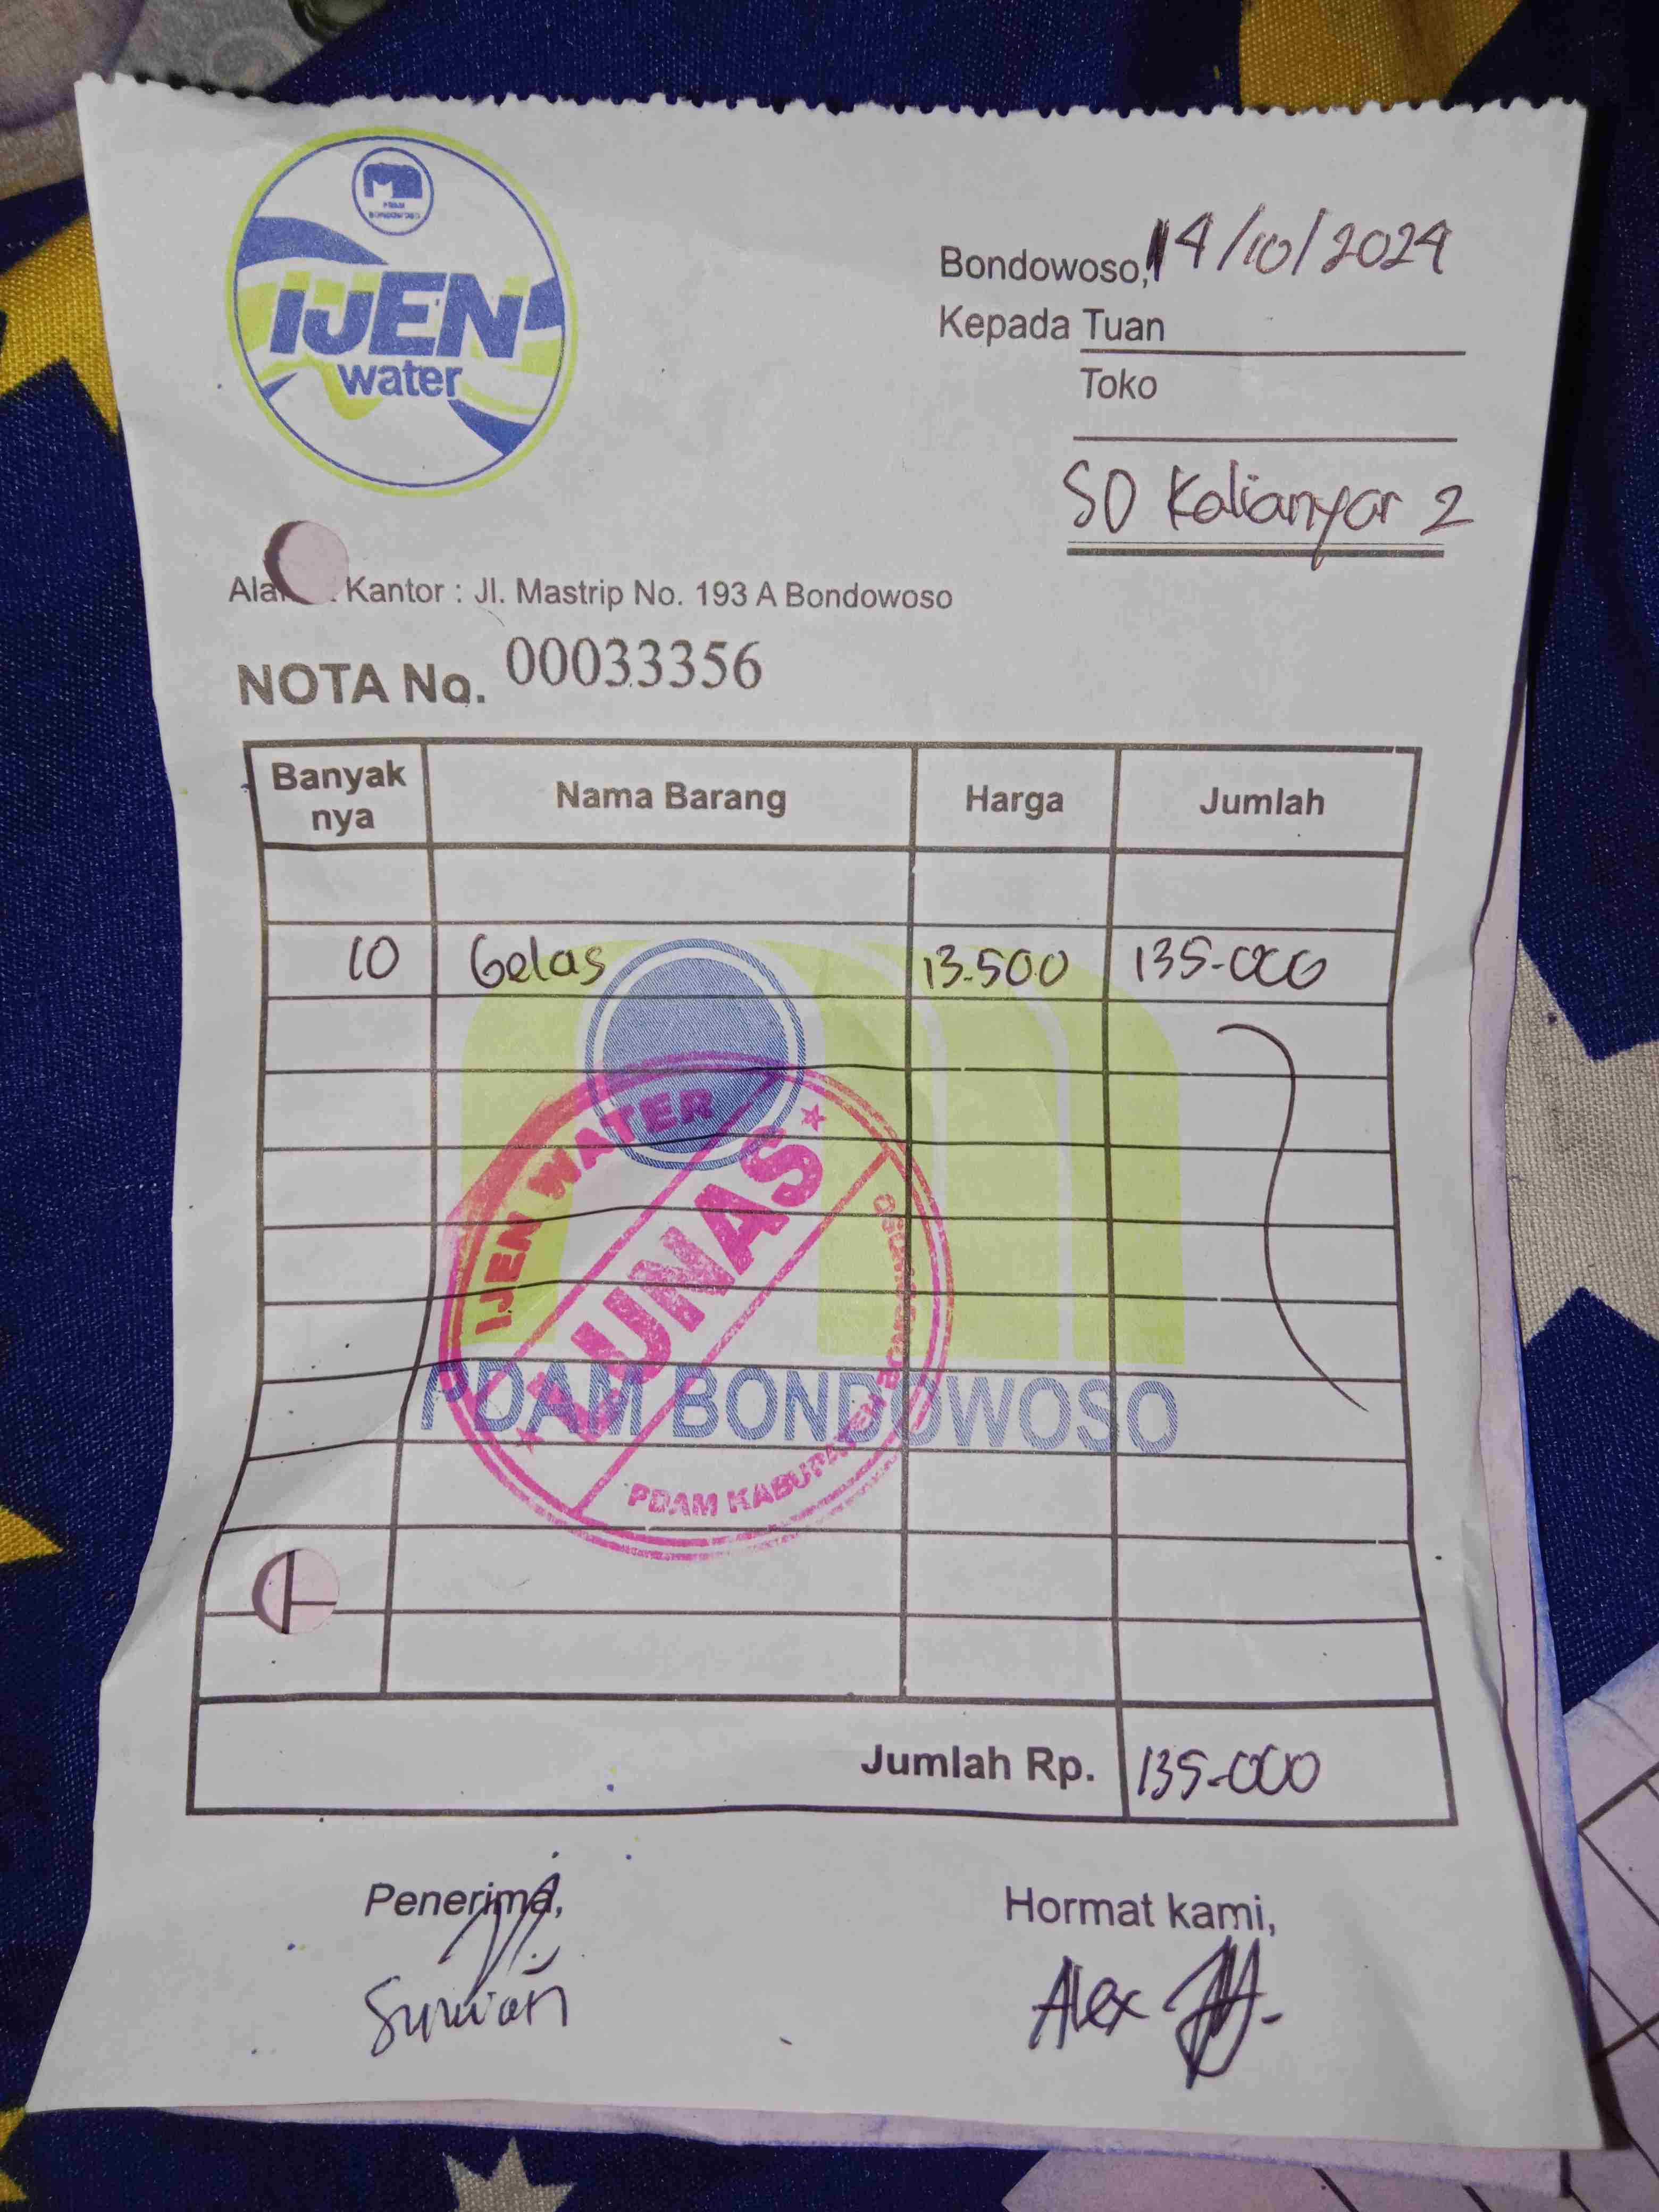 PDAM
BONDOWOSO
IJEN
water
Bondowoso, 14/10/2024
Kepada Tuan
Toko
SD Kalianyar 2
Kantor : Jl. Mastrip No. 193 A Bondowoso
NOTA No. 00033356
Banyak nya Nama Barang Harga Jumlah
10 Gelas 13.500 135.000
IJEN WATER
LUNAS
PDAM KABUPATEN BONDOWOSO
PDAM BONDOWOSO
Jumlah Rp. 135.000
Penerima,
Hormat kami,
Alex